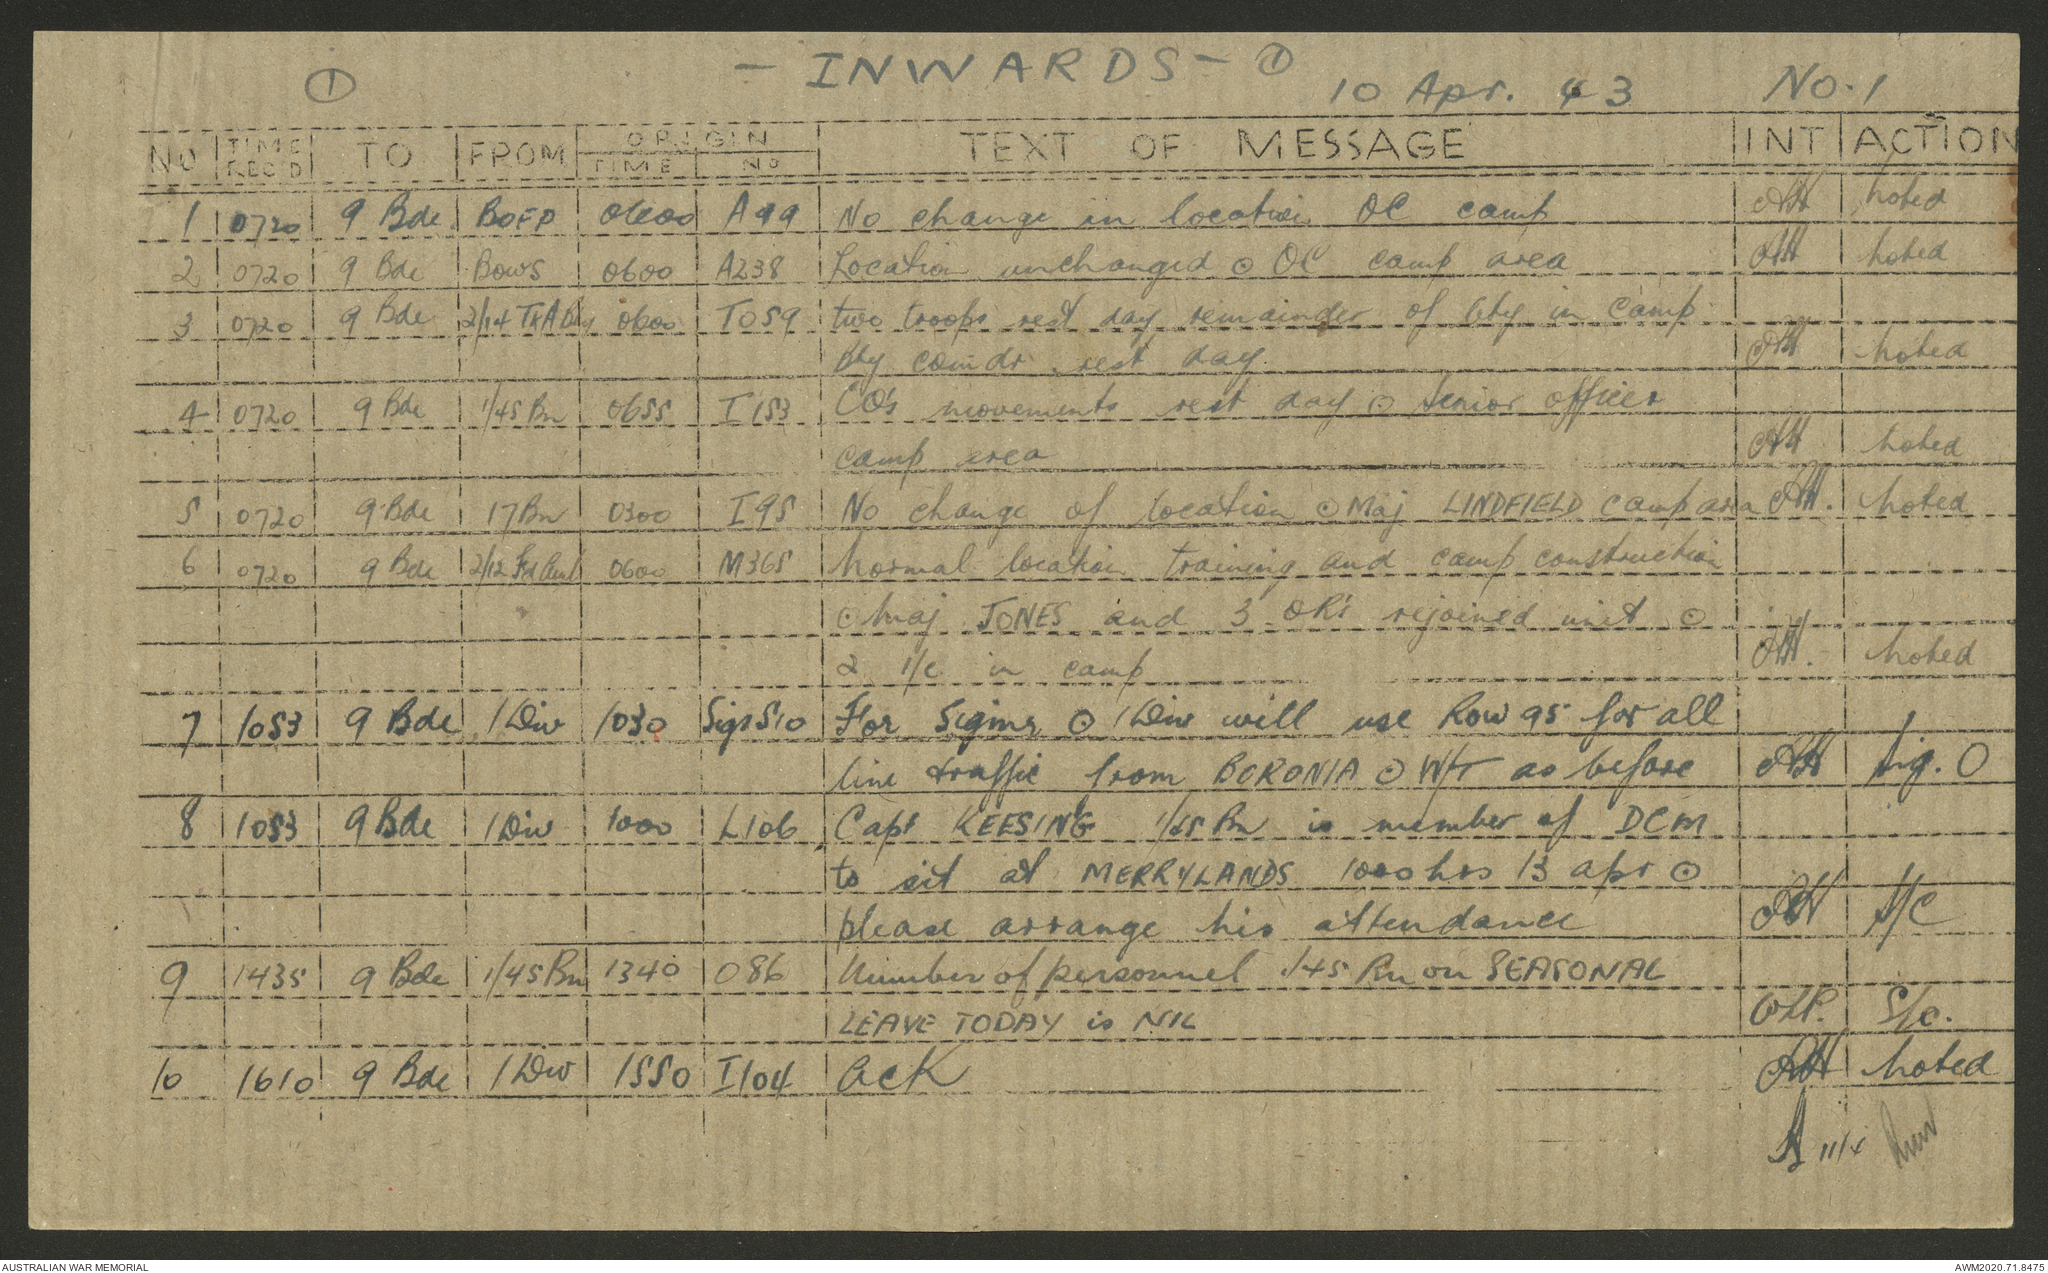 ①
- INWARDS - ①
10 Apr. 43
No. 1
NO TIME REC'D TO FROM ORIGIN TIME NO TEXT OF MESSAGE INT ACTION
1 0720 9 Bde 0600 A99 No change in location OC camp noted
2 0720 9 Bde Bows 0600 A238 Location unchanged ⊙ OC camp area noted
3 0720 9 Bde 2/14 0600 T059 two troops rest day remainder of bty in camp
bty comdr rest day noted
4 0720 9 Bde 1/45 Bn 0655 I153 CO's movements rest day ⊙ Senior officer
camp area noted
5 0720 9 Bde 17 Bn 0300 I95 No change of location ⊙ Maj LINDFIELD camp area noted
6 0720 9 Bde 2/12 Fd Amb 0600 M365 Normal location training and camp construction
⊙ Maj JONES and 3 OR's rejoined unit ⊙
2 i/c in camp noted
7 1053 9 Bde 1 Div 1030 Sigs510 For Sigms ⊙ 1 Div will use Row 95 for all
line traffic from BORONIA ⊙ W/T as before Sig. O
8 1053 9 Bde 1 Div 1000 L106 Capt KEESING 1/45 Bn is member of DCM
to sit at MERRYLANDS 1000 hrs 13 apr ⊙
please arrange his attendance S/C
9 1435 9 Bde 1/45 Bn 1340 O86 Number of personnel 1/45 Bn on SEASONAL
LEAVE TODAY is NIL S/c.
10 1610 9 Bde 1 Div 1550 I104 Ack noted
11/4
AUSTRALIAN WAR MEMORIAL
AWM2020.71.8475